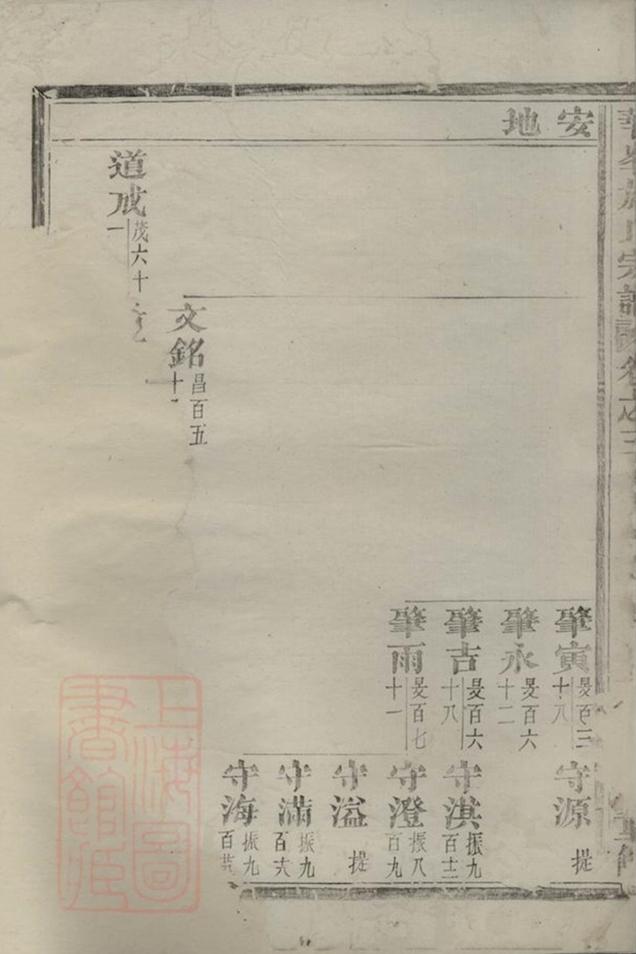 安地
道成 茂六十一
文銘 昌百五十
肇寅 昙百三十八
肇永 昙百六十二
肇吉 昙百六十八
肇雨 昙百七十一
守源 提
守淇 振九百十二
守澄 振八百九
守溢 提
守滿 振九百六
守海 振九百
宗譜卷之三
上海圖書館臧